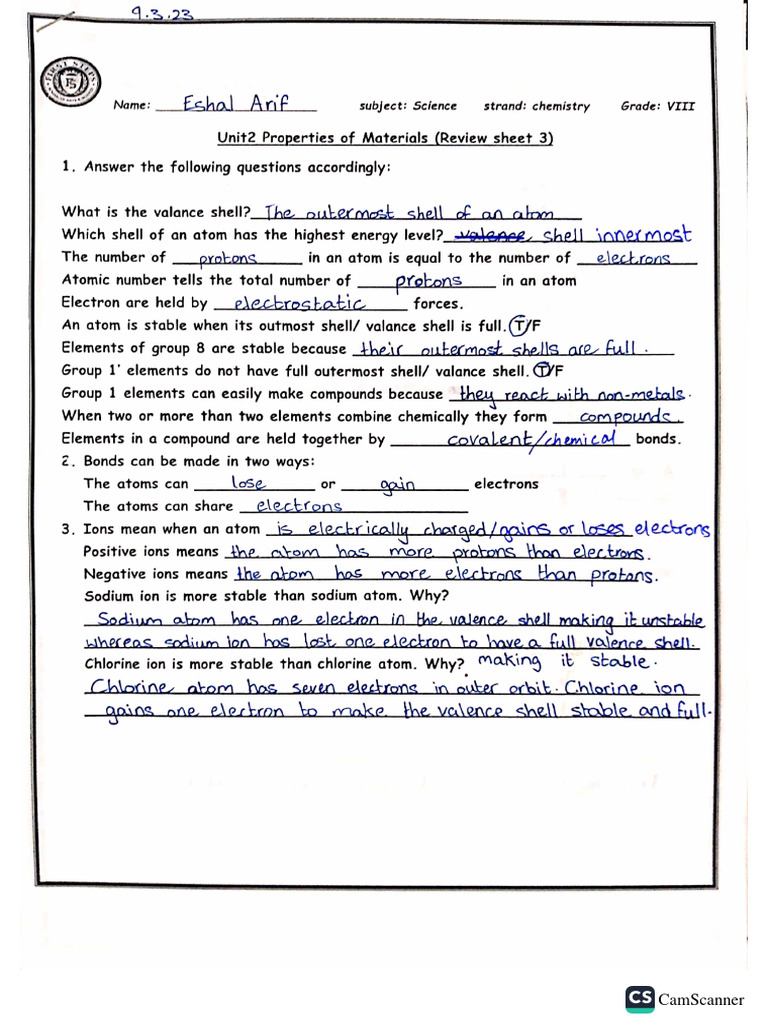 9.3.23
FIRST STEPS
FS
Name: Eshal Arif subject: Science strand: chemistry Grade: VIII
Unit2 Properties of Materials (Review sheet 3)
1. Answer the following questions accordingly:
What is the valance shell? The outermost shell of an atom
Which shell of an atom has the highest energy level? valence shell innermost
The number of protons in an atom is equal to the number of electrons
Atomic number tells the total number of protons in an atom
Electron are held by electrostatic forces.
An atom is stable when its outmost shell/ valance shell is full. T/F
Elements of group 8 are stable because their outermost shells are full.
Group 1' elements do not have full outermost shell/ valance shell. T/F
Group 1 elements can easily make compounds because they react with non-metals.
When two or more than two elements combine chemically they form compounds.
Elements in a compound are held together by covalent/chemical bonds.
2. Bonds can be made in two ways:
The atoms can lose or gain electrons
The atoms can share electrons
3. Ions mean when an atom is electrically charged/gains or loses electrons
Positive ions means the atom has more protons than electrons.
Negative ions means the atom has more electrons than protons.
Sodium ion is more stable than sodium atom. Why?
Sodium atom has one electron in the valence shell making it unstable
whereas sodium ion has lost one electron to have a full valence shell.
Chlorine ion is more stable than chlorine atom. Why? making it stable.
Chlorine atom has seven electrons in outer orbit. Chlorine ion
gains one electron to make the valence shell stable and full.
CS CamScanner